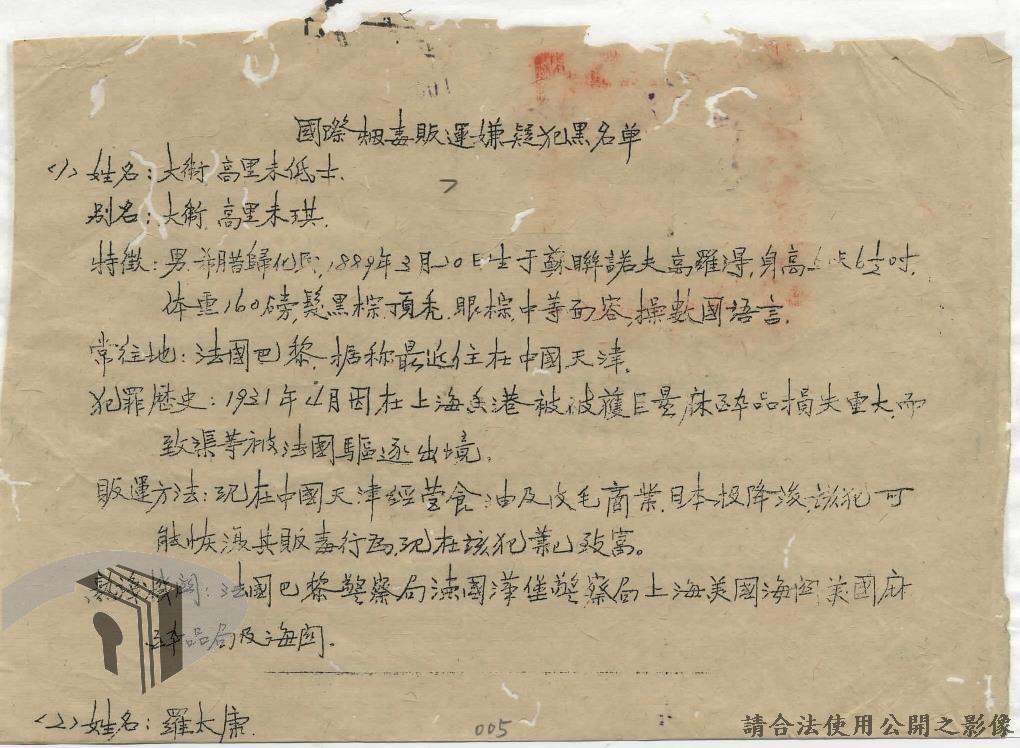 國際烟毒販運嫌疑犯黑名单
(1) 姓名：大衛.高里未低士.
别名：大衛.高里未琪.
特徵：男.希腊歸化民,1889年3月20日生于蘇聯諾夫高羅得,身高5呎6½吋,
体重160磅,髮黑棕.頂禿.眼棕.中等面容,操數國語言.
常往地：法國巴黎.据称最近住在中國天津.
犯罪歷史：1931年4月因在上海香港被破獲巨量麻醉品損失重大,而
致渠等被法國驅逐出境。
販運方法：現在中國天津經营食油及皮毛商業.日本投降後,該犯可
能恢復其販毒行為,現在該犯業已致富。
熟淺機関：法國巴黎警察局法國漢堡警察局上海美國海関美國麻
醉品局及海関.
(2) 姓名：羅太康.
005
請合法使用公開之影像